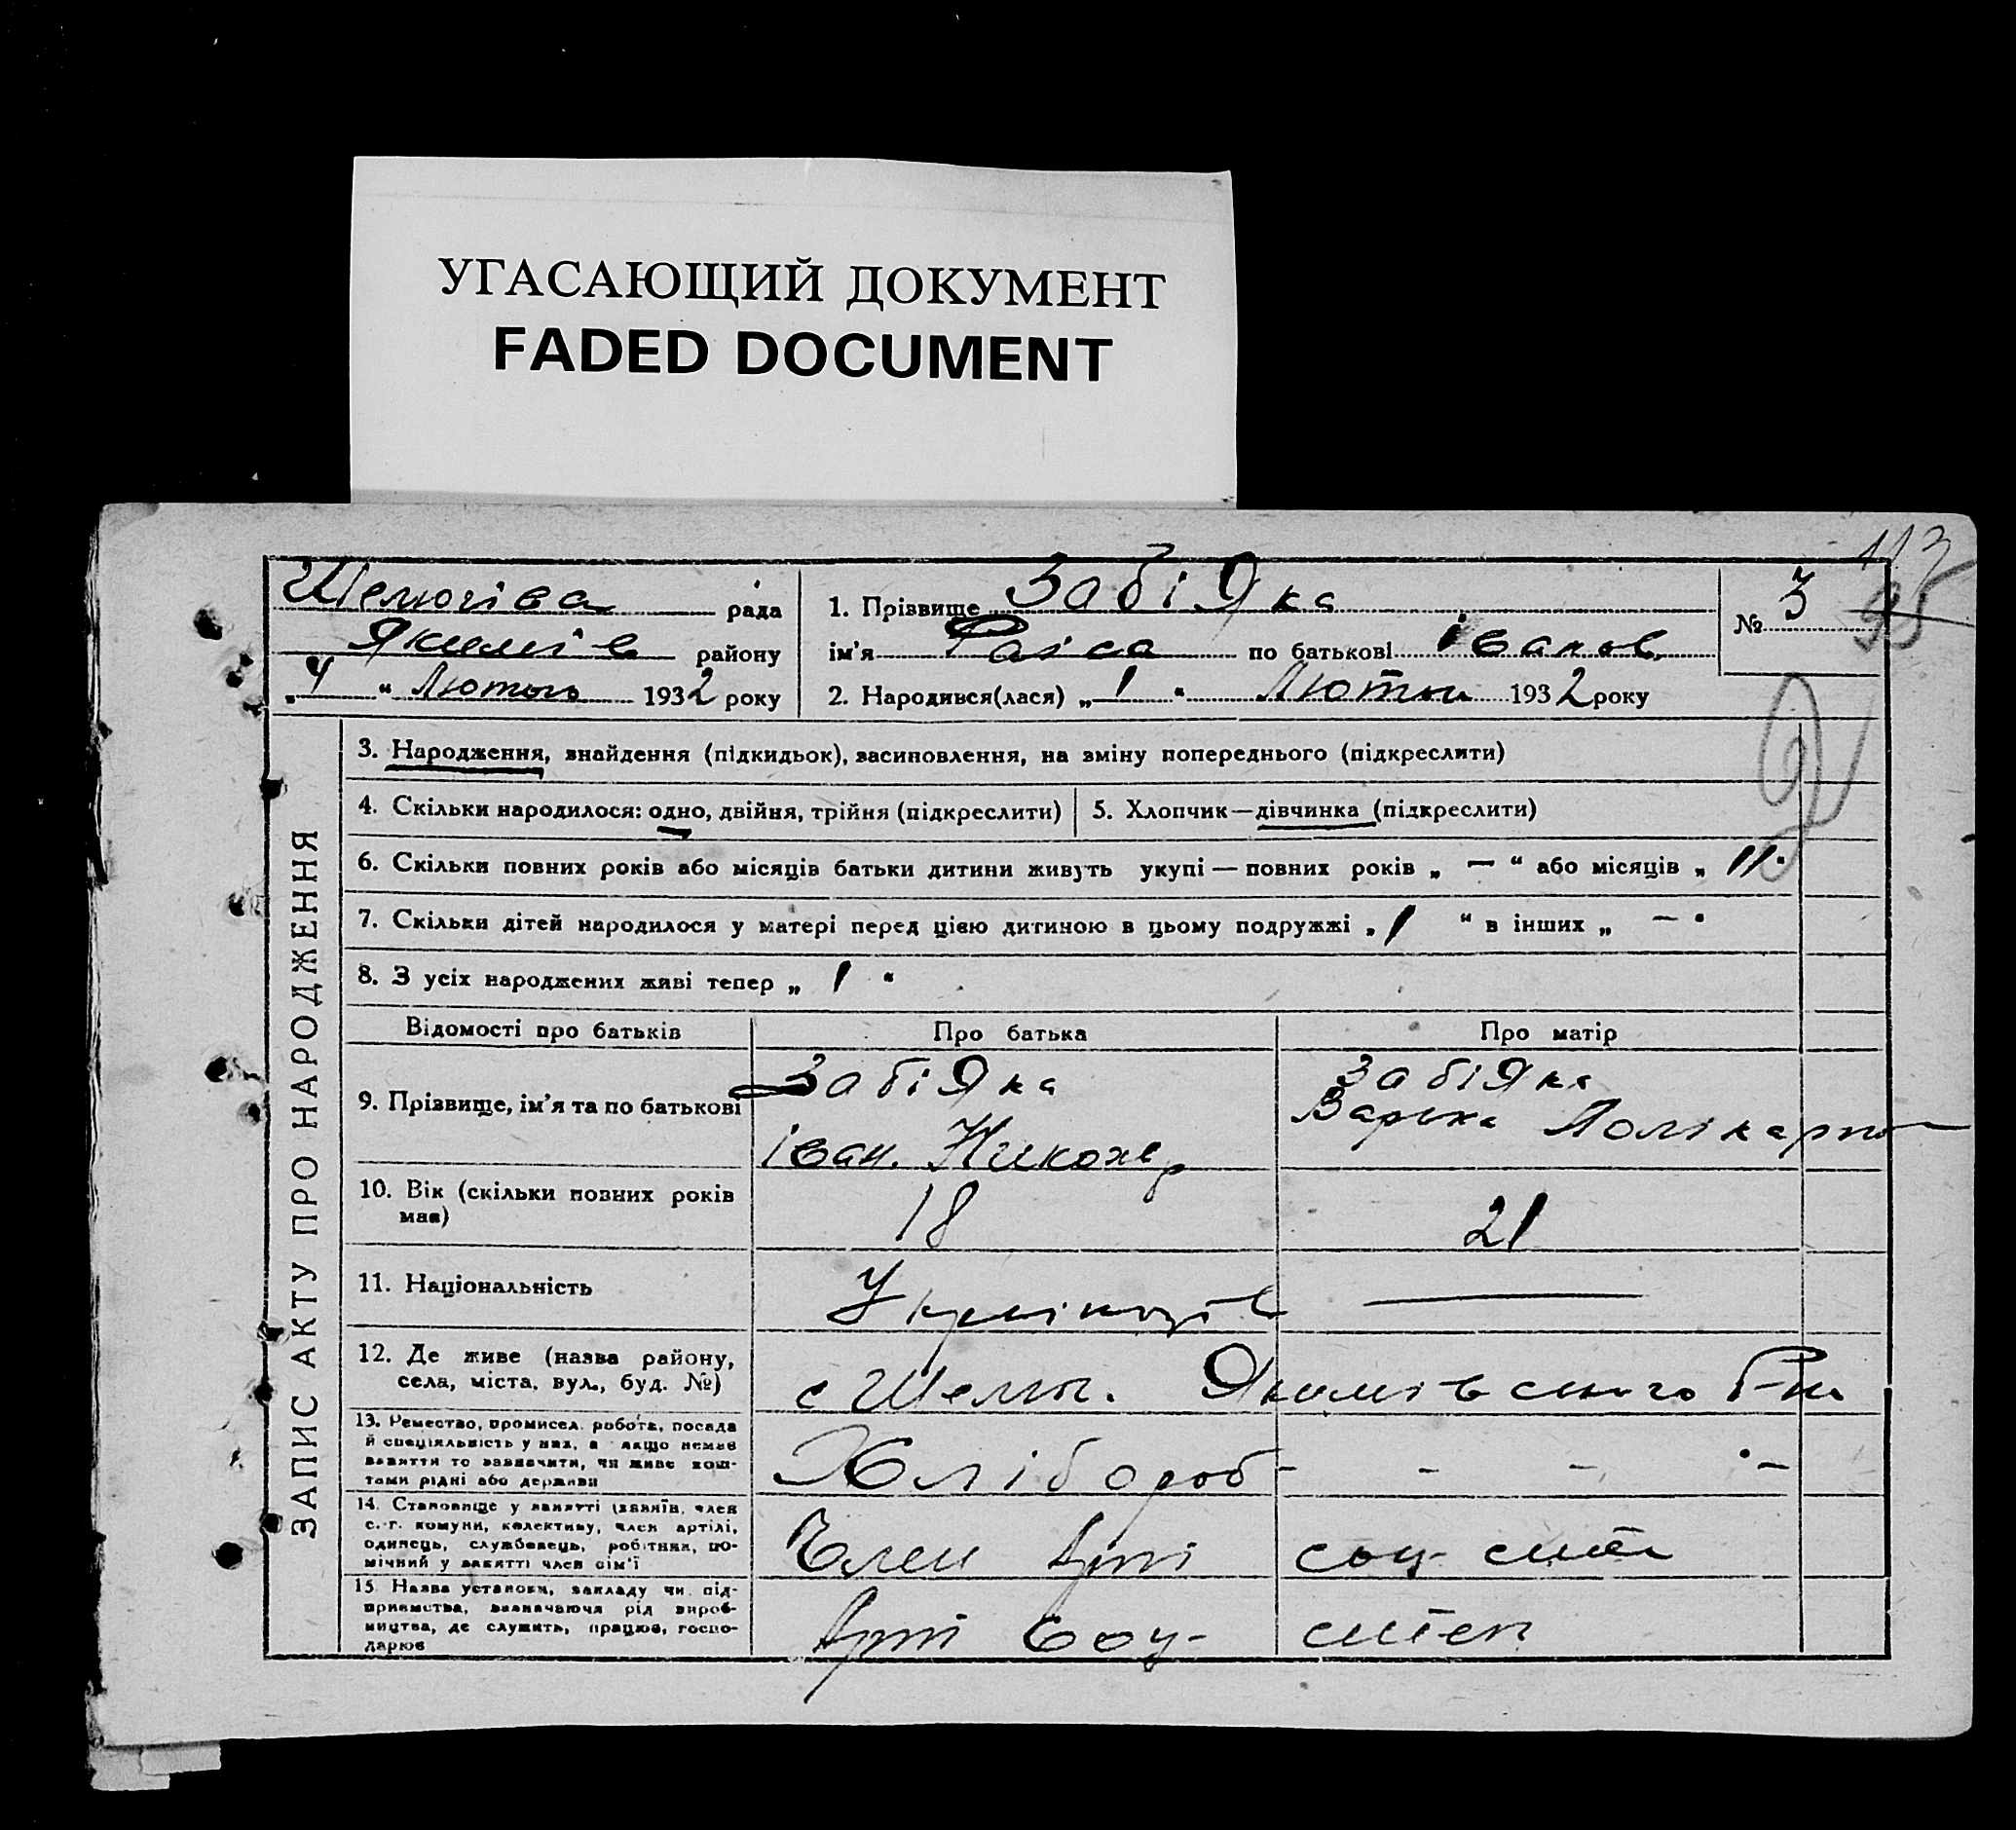 УГАСАЮЩИЙ ДОКУМЕНТ
FADED DOCUMENT
113
95
рада
району
„4“ 1932 року
1. Прізвище ЗабіЯка
ім’я Раіса по батькові Іванов
2. Народився(лася) „1“ 1932 року
№ 3
ЗАПИС АКТУ ПРО НАРОДЖЕННЯ
3. Народження, знайдення (підкидьок), засиновлення, на зміну попереднього (підкреслити)
4. Скільки народилося: одно, двійня, трійня (підкреслити)
5. Хлопчик—дівчинка (підкреслити)
6. Скільки повних років або місяців батьки дитини живуть укупі — повних років „ — “ або місяців „ 11 “
7. Скільки дітей народилося у матері перед цією дитиною в цьому подружжі „ 1 “ в інших „ — “
8. З усіх народжених живі тепер „ 1 “
Відомості про батьків
Про батька
Про матір
9. Прізвище, ім’я та по батькові
ЗабіЯка
іван.
ЗабіЯка
Варька Полікарпо
10. Вік (скільки повних років має)
18
21
11. Національність
12. Де живе (назва району, села, міста, вул., буд. №)
с Шелюг. Якимівського Р-ну
13. Ремество, промисел, робота, посада
й спеціяльність у них, а якщо немає
заняття то зазначити, чи живе кош-
тами рідні або держави
Хлібороб - - - -
14. Становище у занятті (хазяїн, член
с.-г. комуни, колективу, член артілі,
одинець, службовець, робітник, по-
мічний у занятті член сім’ї
Член Арті
соц-
15. Назва установи, закладу чи під-
приємства, зазначаючи рід вироб-
ництва, де служить, працює, госпо-
дарює
Арті Соц-
степ